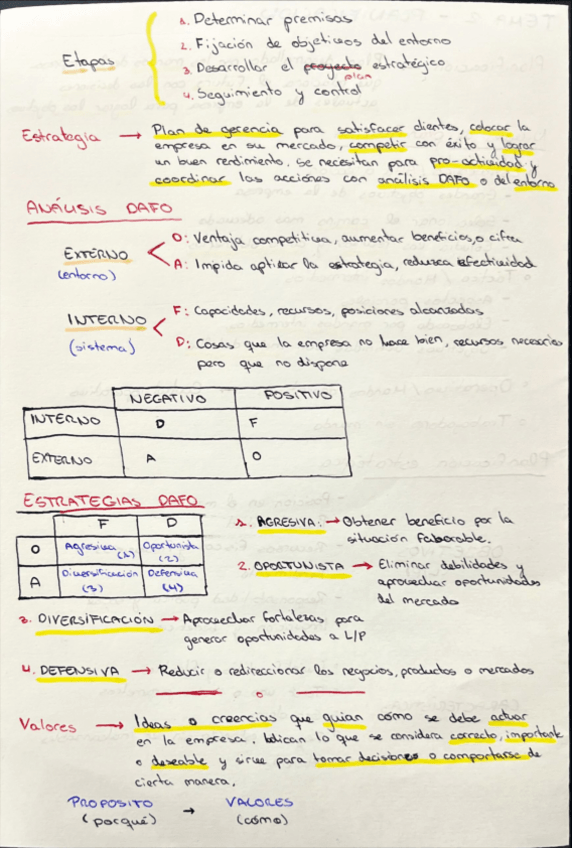 1. Determinar premisas
2. Fijación de objetivos del entorno
Etapas
3. Desarrollar el proyecto estratégico
plan
4. Seguimiento y control
Estrategia → Plan de gerencia para satisfacer clientes, colocar la
empresa en su mercado, competir con éxito y lograr
un buen rendimiento. Se necesitan para pro-actividad y
coordinar las acciones con análisis DAFO o del entorno
ANÁLISIS DAFO
EXTERNO
(entorno)
O: Ventaja competitiva, aumentar beneficios, o cifra
A: Impida aplicar la estrategia, reduzca efectividad
INTERNO
(sistema)
F: Capacidades, recursos, posiciones alcanzadas
D: Cosas que la empresa no hace bien, recursos necesarios
pero que no dispone
NEGATIVO POSITIVO
INTERNO D F
EXTERNO A O
ESTRATEGIAS DAFO
F D
O Agresiva (1) Oportunista (2)
A Diversificación (3) Defensiva (4)
1. AGRESIVA: → Obtener beneficio por la
situación faborable.
2. OPORTUNISTA → Eliminar debilidades y
aprovechar oportunidades
del mercado
3. DIVERSIFICACIÓN → Aprovechar fortalezas para
generar oportunidades a L/P
4. DEFENSIVA → Reducir o redireccionar los negocios, productos o mercados
Valores → Ideas o creencias que guian cómo se debe actuar
en la empresa. Indican lo que se considera correcto, importante
o deseable y sirve para tomar decisiones o comportarse de
cierta manera.
PROPOSITO → VALORES
(porqué) (cómo)